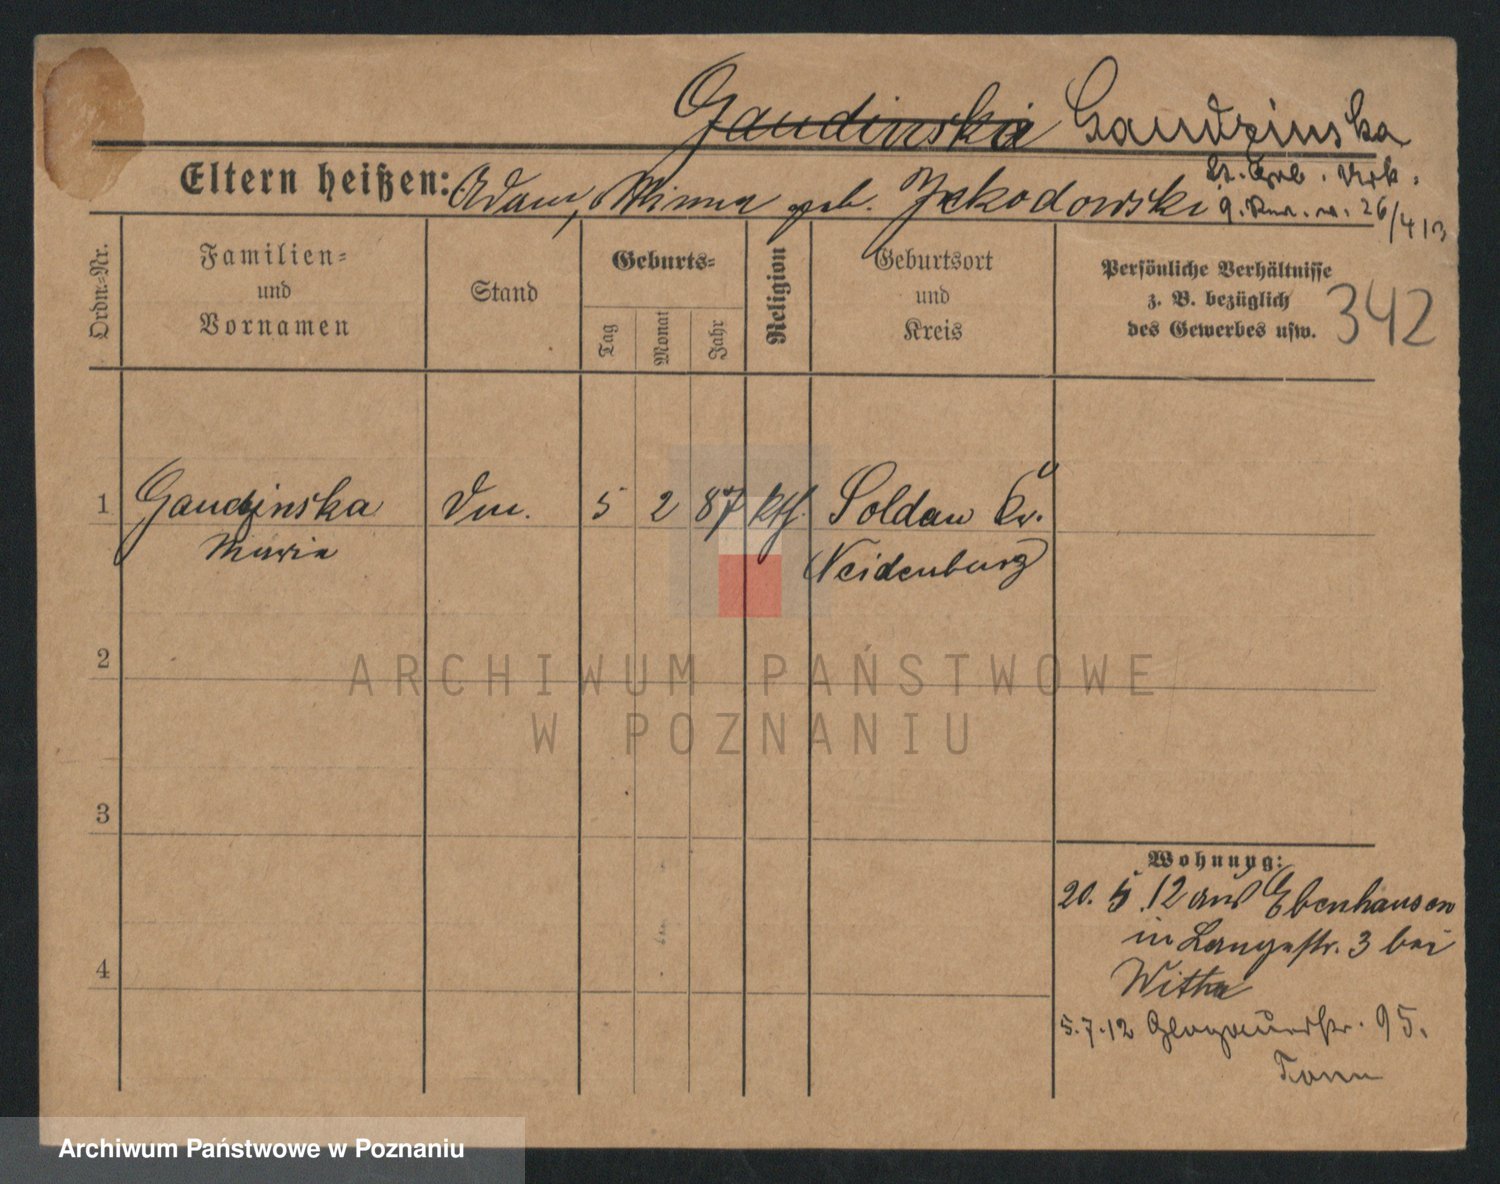 Gaudinska Gaudzinska
Eltern heißen: Adam, Minna geb. Jekodowski
26/4 13
Ordn.-Nr.
Familien-
und
Vornamen
Stand
Geburts-
Tag
Monat
Jahr
Religion
Geburtsort
und
Kreis
Persönliche Verhältnisse
z. B. bezüglich
des Gewerbes usw.
342
1 Gaudzinska 5 2 87 kth. Soldau Kr.
Maria Neidenburg
2
3
4
Wohnung:
20. 5. 12 aus Ebenhausen
in Langestr. 3 bei
5.7.12 Glogauerstr. 95.
ARCHIWUM PAŃSTWOWE
W POZNANIU
Archiwum Państwowe w Poznaniu